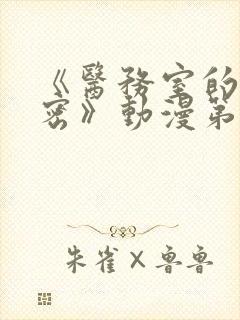 《醫務室的
密》動漫第
朱雀×魯魯